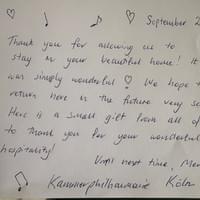 September 2
Thank you for allowing us to
stay in your beautiful home! It
was simply wonderful! We hope t
return here in the future very so
Here is a small gift from all of
to thank you for your wonderful
hospitality!
Until next time, Mer
Kammerphilharmonie Köln